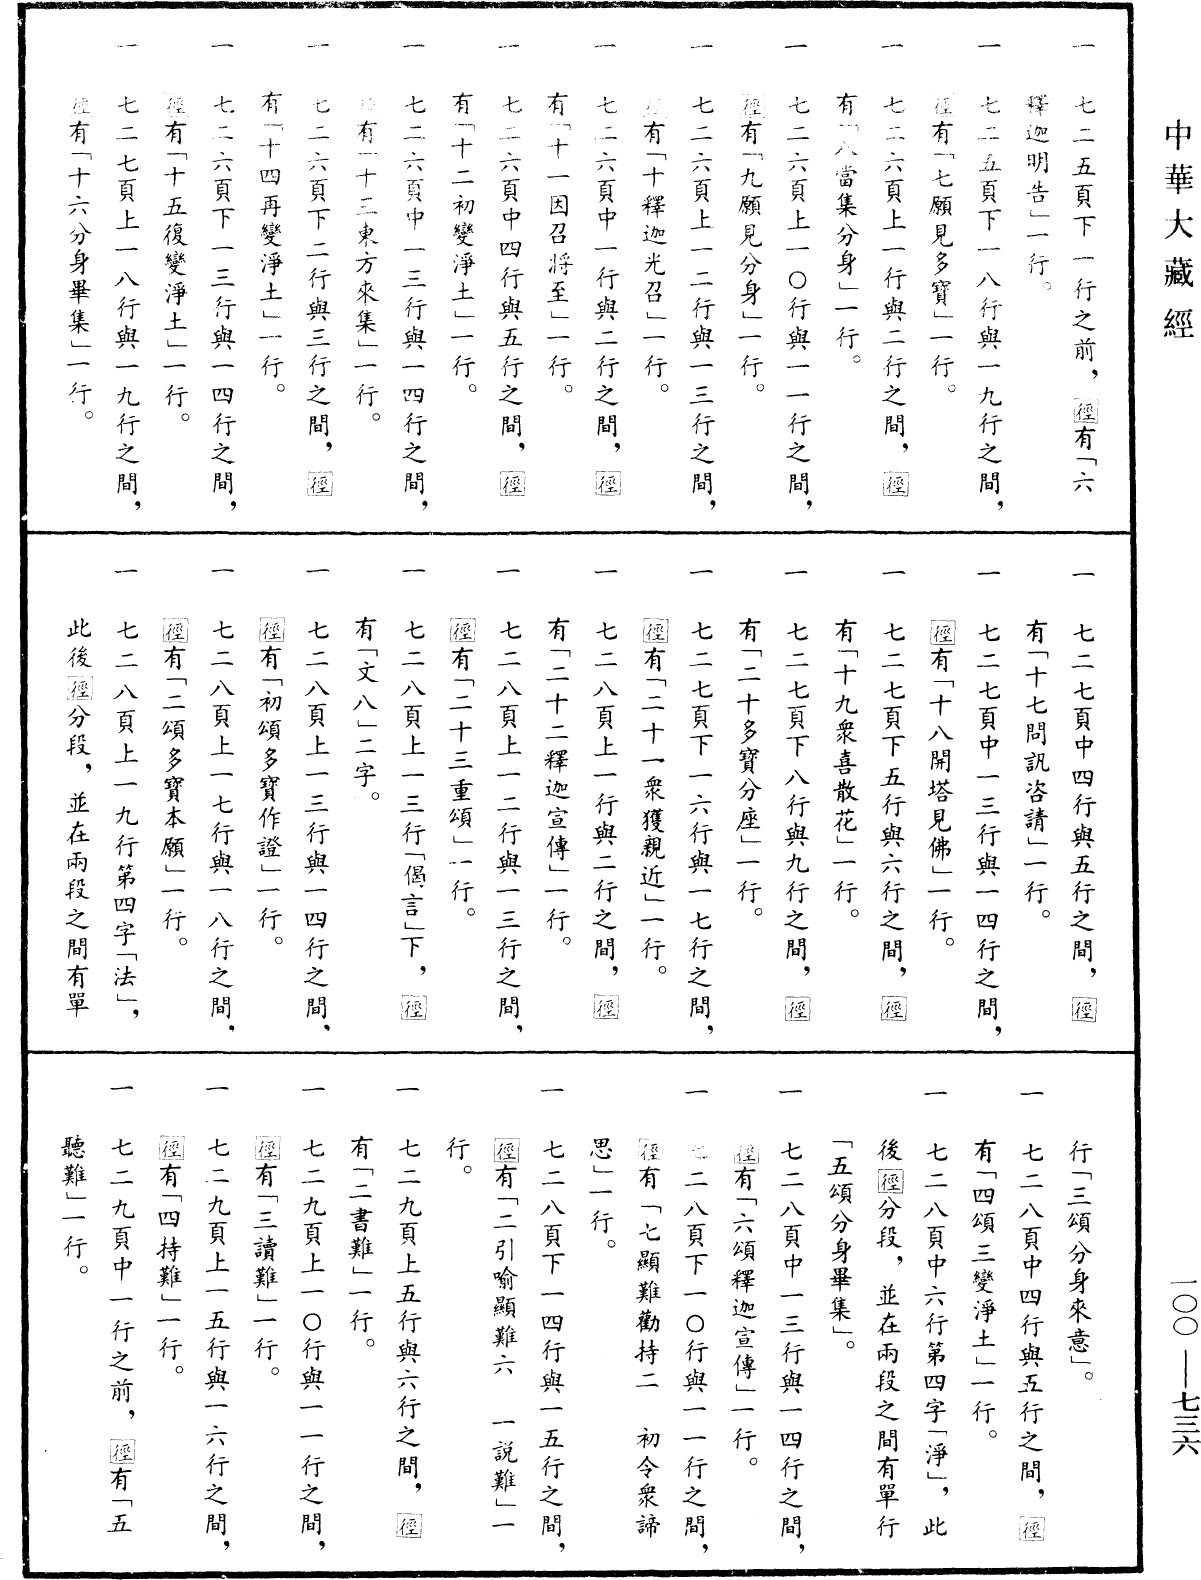 中華大藏經
一　七二五頁下一行之前，徑有「六
釋迦明告」一行。
一　七二五頁下一八行與一九行之間，
徑有「七願見多寶」一行。
一　七二六頁上一行與二行之間，徑
有「八當集分身」一行。
一　七二六頁上一〇行與一一行之間，
徑有「九願見分身」一行。
一　七二六頁上一二行與一三行之間，
徑有「十釋迦光召」一行。
一　七二六頁中一行與二行之間，徑
有「十一因召將至」一行。
一　七二六頁中四行與五行之間，徑
有「十二初變淨土」一行。
一　七二六頁中一三行與一四行之間，
徑有「十三東方來集」一行。
一　七二六頁下二行與三行之間，徑
有「十四再變淨土」一行。
一　七二六頁下一三行與一四行之間，
徑有「十五復變淨土」一行。
一　七二七頁上一八行與一九行之間，
徑有「十六分身畢集」一行。
一　七二七頁中四行與五行之間，徑
有「十七問訊咨請」一行。
一　七二七頁中一三行與一四行之間，
徑有「十八開塔見佛」一行。
一　七二七頁下五行與六行之間，徑
有「十九衆喜散花」一行。
一　七二七頁下八行與九行之間，徑
有「二十多寶分座」一行。
一　七二七頁下一六行與一七行之間，
徑有「二十一衆獲親近」一行。
一　七二八頁上一行與二行之間，徑
有「二十二釋迦宣傳」一行。
一　七二八頁上一二行與一三行之間，
徑有「二十三重頌」一行。
一　七二八頁上一三行「偈言」下，徑
有「文八」二字。
一　七二八頁上一三行與一四行之間，
徑有「初頌多寶作證」一行。
一　七二八頁上一七行與一八行之間，
徑有「二頌多寶本願」一行。
一　七二八頁上一九行第四字「法」，
此後徑分段，並在兩段之間有單
行「三頌分身來意」。
一　七二八頁中四行與五行之間，徑
有「四頌三變淨土」一行。
一　七二八頁中六行第四字「淨」，此
後徑分段，並在兩段之間有單行
「五頌分身畢集」。
一　七二八頁中一三行與一四行之間，
徑有「六頌釋迦宣傳」一行。
一　七二八頁下一〇行與一一行之間，
徑有「七顯難勸持二　初令衆諦
思」一行。
一　七二八頁下一四行與一五行之間，
徑有「二引喻顯難六　一說難」一
行。
一　七二九頁上五行與六行之間，徑
有「二書難」一行。
一　七二九頁上一〇行與一一行之間，
徑有「三讀難」一行。
一　七二九頁上一五行與一六行之間，
徑有「四持難」一行。
一　七二九頁中一行之前，徑有「五
聽難」一行。
一〇〇——七三六